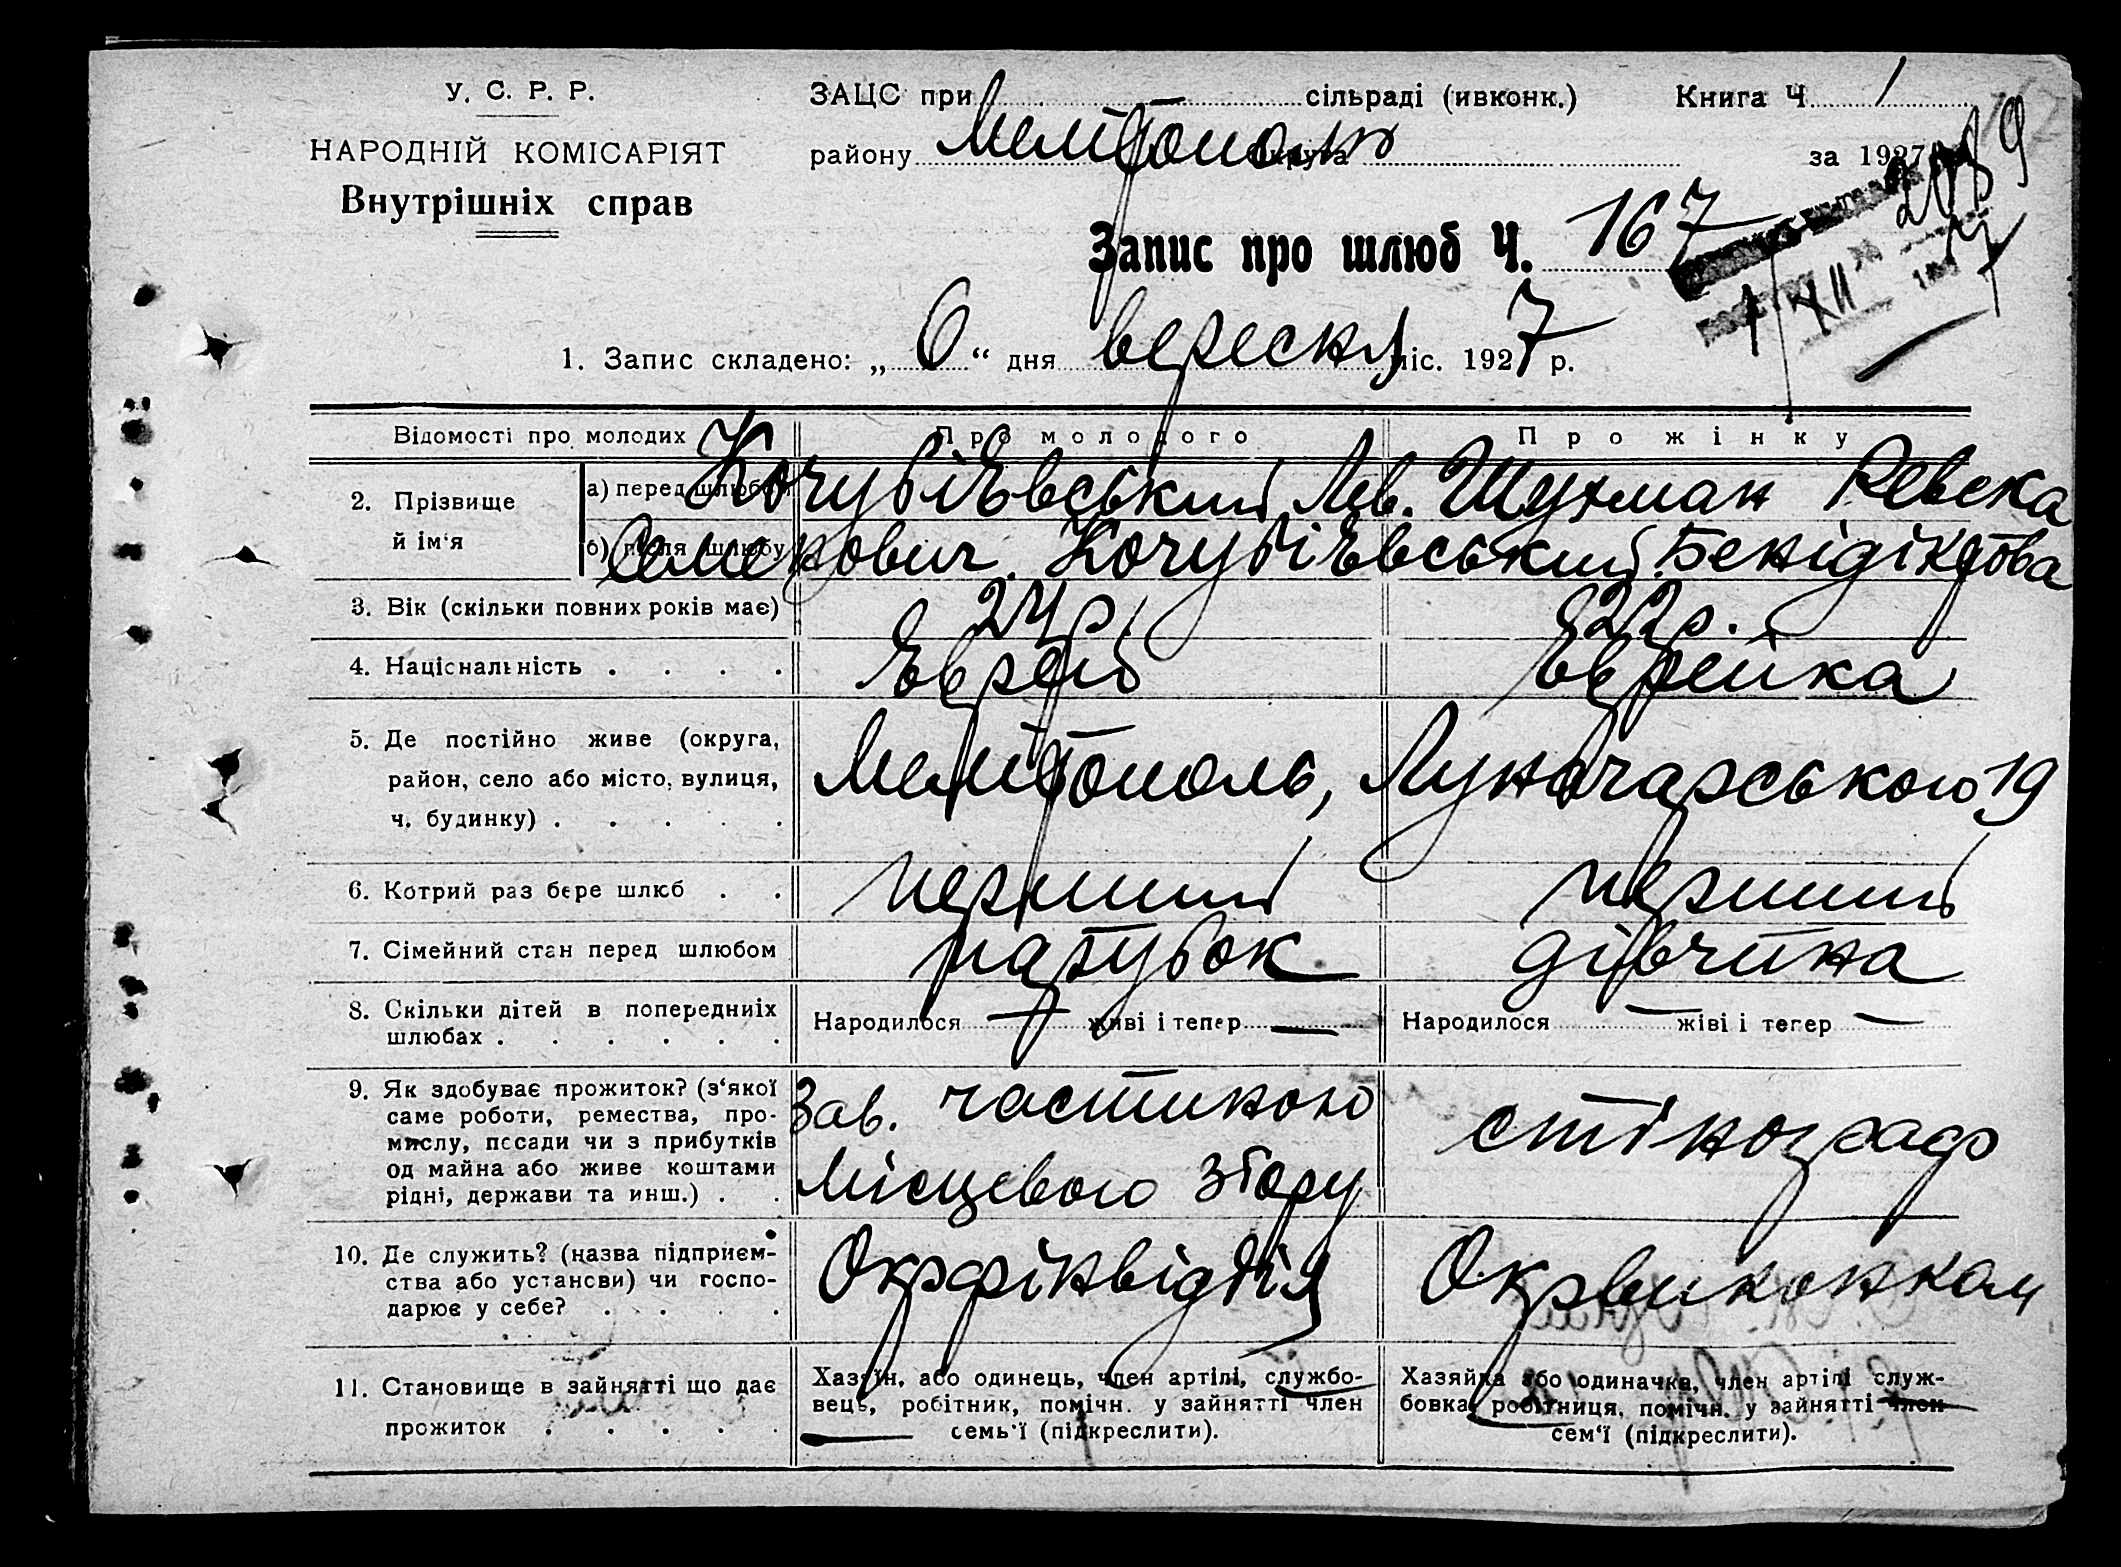 У. С. Р. Р.
НАРОДНІЙ КОМІСАРІЯТ
Внутрішніх справ
ЗАЦС при сільраді (ивконк.) Книга Ч 1
району Мелітополь округа за 1927
2089
Запис про шлюб Ч. 167
1 XII
1. Запис складено: „6“ дня вересня міс. 1927 р.
Відомості про молодих Про молодого Про жінку
2. Прізвище й ім‘я
а) перед шлюбом Кочубієвський Лев. Шухман Ревека
б) після шлюбу Семенович. Кочубієвський. Бенідіктова
3. Вік (скільки повних років має) 24 р. 22 р.
4. Національність . . . . Єврей Єврейка
5. Де постійно живе (округа,
район, село або місто, вулиця, Мелітополь, Луначарського 19
ч. будинку) . . . . .
6. Котрий раз бере шлюб . . перший перший
7. Сімейний стан перед шлюбом парубок дівчина
8. Скільки дітей в попередниіх
шлюбах . . . . . . Народилося — живі і тепер — Народилося — жіві і тепер —
9. Як здобуває прожиток? (з‘якої
саме роботи, ремества, про-
мислу, посади чи з прибутків
од майна або живе коштами
рідні, держави та инш.) . .
Зав. частиною
Місцевого збору
стінограф
10. Де служить? (назва підприєм-
ства або установи) чи госпо-
дарює у себе? . . . .
Окрфінвідділ
Окрвиконком
11. Становище в зайнятті що дає
прожиток . . . . .
Хазяїн, або одинець, член артілі, службо-
вець, робітник, помічн. у зайнятті член
семь‘ї (підкреслити).
Хазяйка або одиначка, член артілі служ-
бовка, робітниця, помічн. у зайнятті член
сем‘ї (підкреслити).